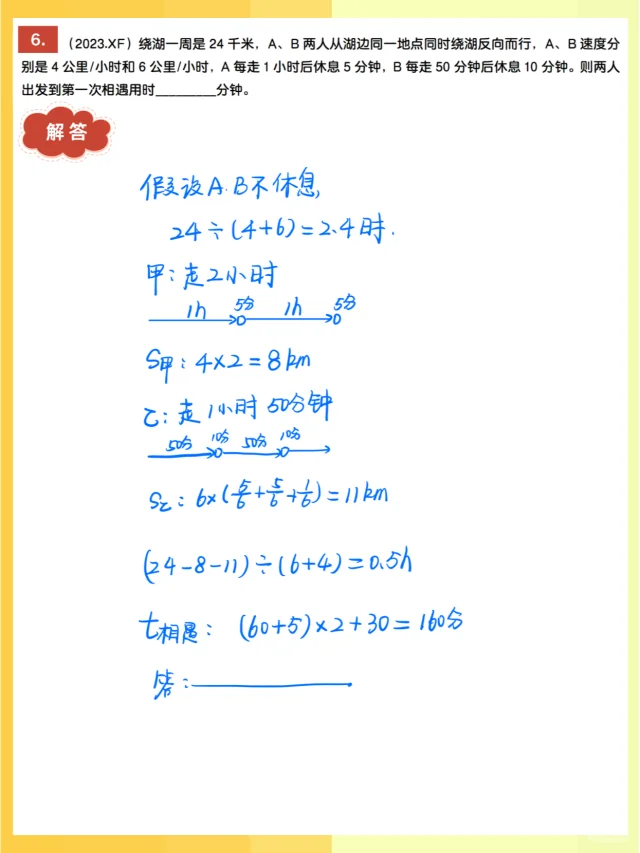 6. （2023.XF）绕湖一周是 24 千米，A、B 两人从湖边同一地点同时绕湖反向而行，A、B 速度分
别是 4 公里/小时和 6 公里/小时，A 每走 1 小时后休息 5 分钟，B 每走 50 分钟后休息 10 分钟。则两人
出发到第一次相遇用时_________分钟。
解答
假设A.B不休息,
24÷(4+6)=2.4时.
甲:走2小时
1h 5分 1h 5分
S甲:4×2=8km
乙:走1小时50分钟
50分 10分 50分 10分
S乙:6×(5/6+5/6+1/6)=11km
(24-8-11)÷(6+4)=0.5h
t相遇: (60+5)×2+30=160分
答: